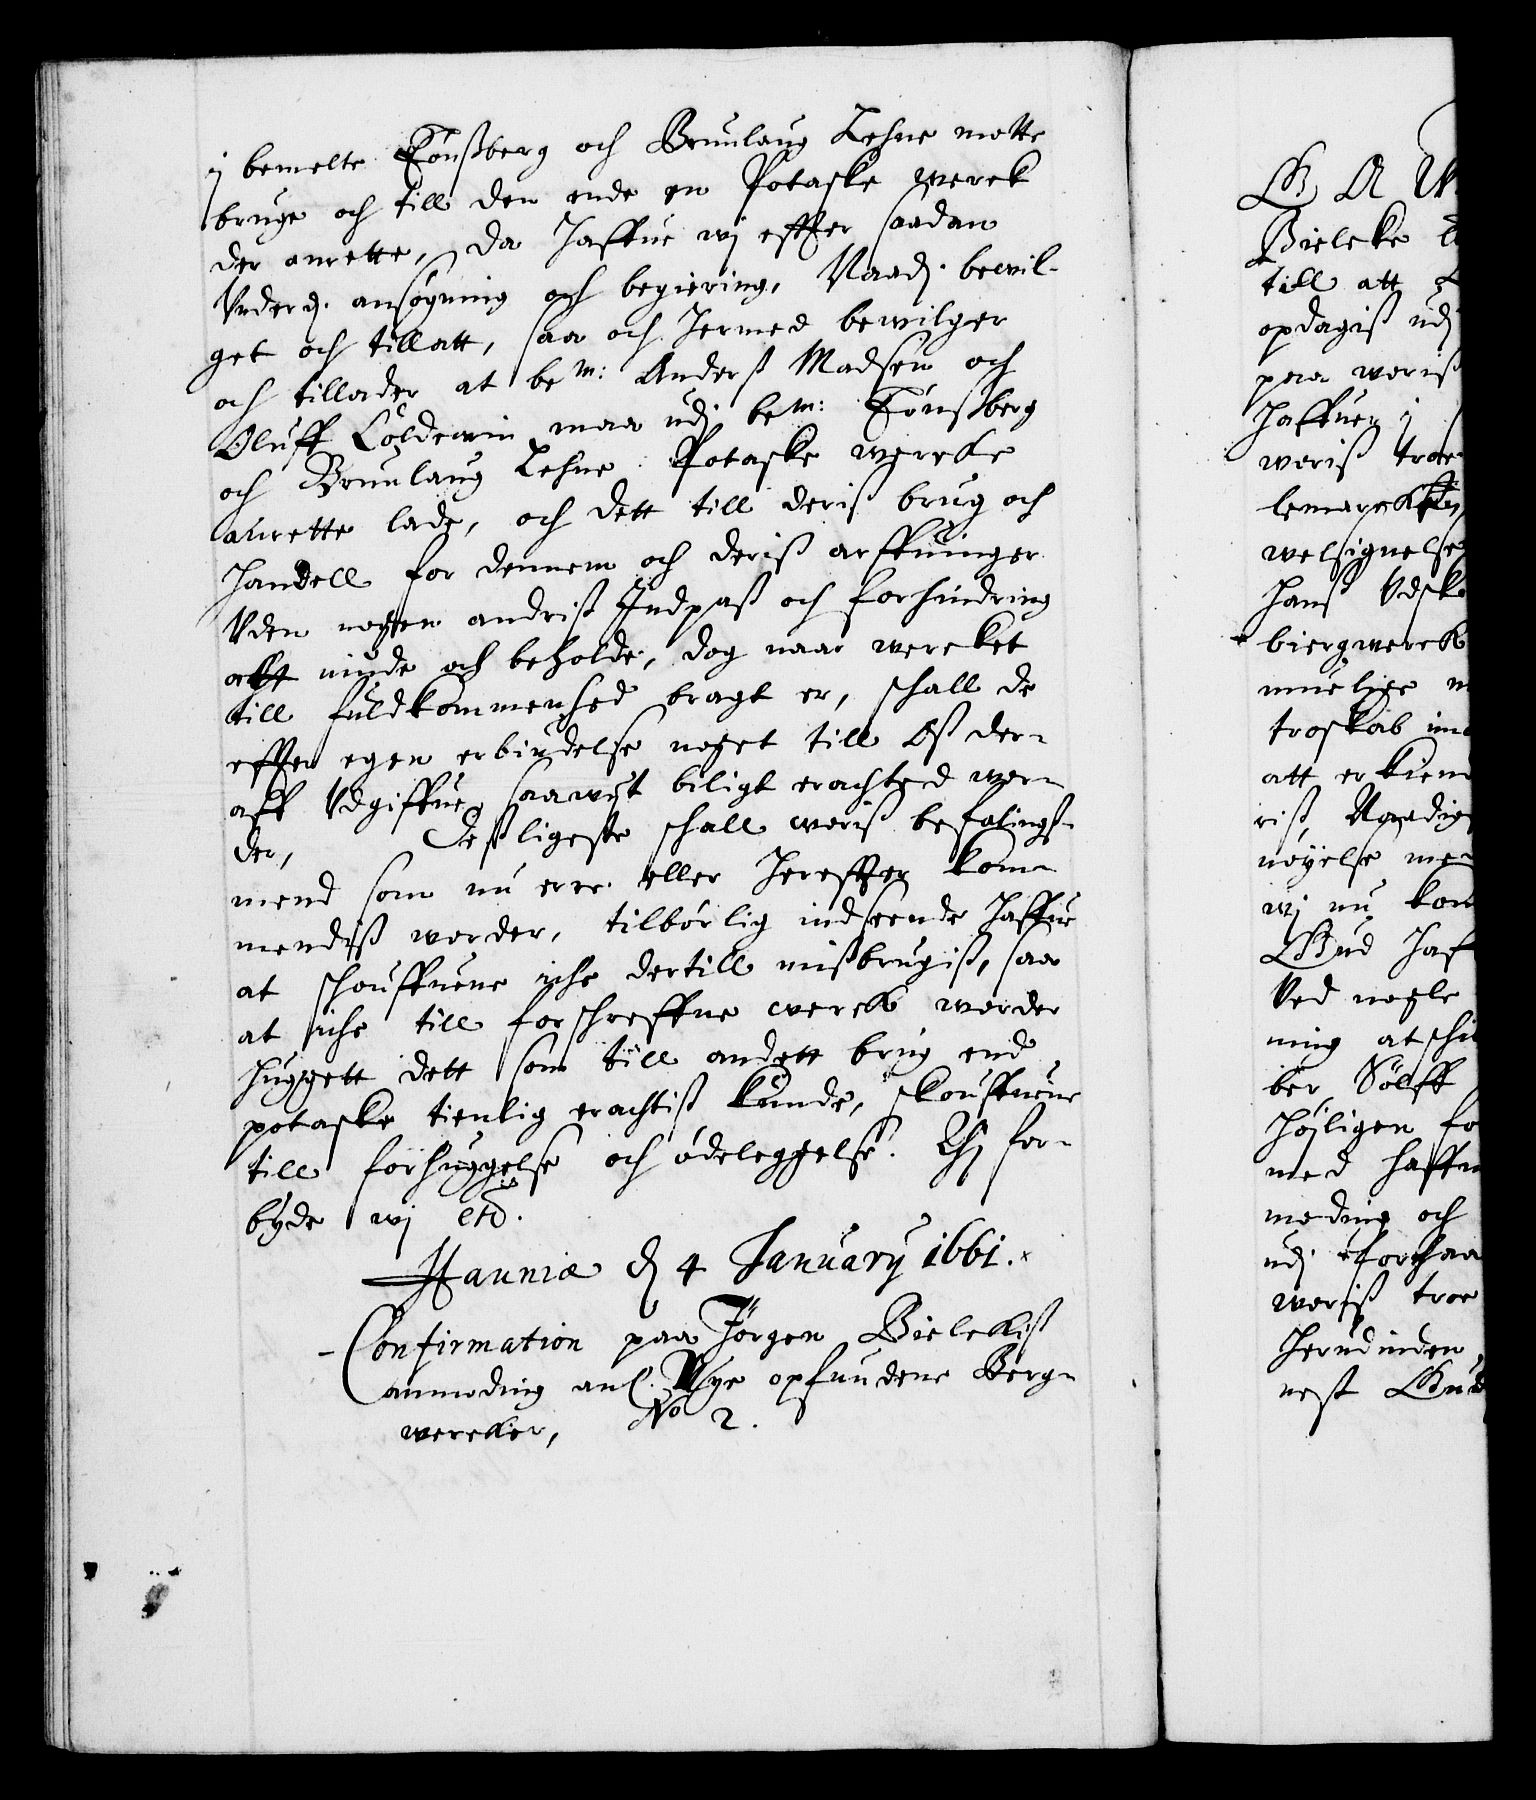 j bemelte Tönßberg och Brunlaug Lehne motte
bruge och till den ende en Potaske werck
der anrette, da haffue wj effter saadan
Underd. ansögning och begiering, Naad. bewil-
get och tillatt, saa och hermed bewilger
och tillader at bem: Anderß Madsen och
Oluff Coldewin maa udj bem: Tönßberg
och Brunlaug Lehne Potaske wercke
anrette lade, och dett till deriß brug och
handell for dennem och deriß arffuinger
Uden nogen andriß Indpaß och forhindring
att niude och beholde, dog naar wercket
till fuldkommenhed bragt er, schall de
effter egen erbiudelse noget till Oß der-
aff Udgiffue, saawjt biligt erachted wor-
der, Deßligeste schall woriß befalings-
mend som nu erer eller hereffter kom-
mendiß worder, tilbörlig indseende haffue
at schouffuene iche dertill mißbrugiß, saa
at iche till forschreffne werck worder
huggett dett som till andett brug end
potaske tienlig erachtiß kunde, skouffuene
till forhuggelse och ödeleggelse. Thj for-
byde wj etc.
Hauniæ d 4 January 1661.
Confirmation paa Jörgen Bielckiß
anmoding anl. Nye opfundene Berg-
wercker, No 2.
G A W
Bielcke
till att
opdagiß udj
paa woriß
haffuer j
woriß troe
lemarcken,
welsignelse
hanß Udsk
biergwerck
muelige
troskab im
att erkiend
riß, Naadig
nöyelse me
wj nu kon
Gud haf
Ved nogle
ning at schi
ber, Sölff
höjligen fo
med haffu
moding och
udj forschaa
woriß troe
herudinden
nest Gud